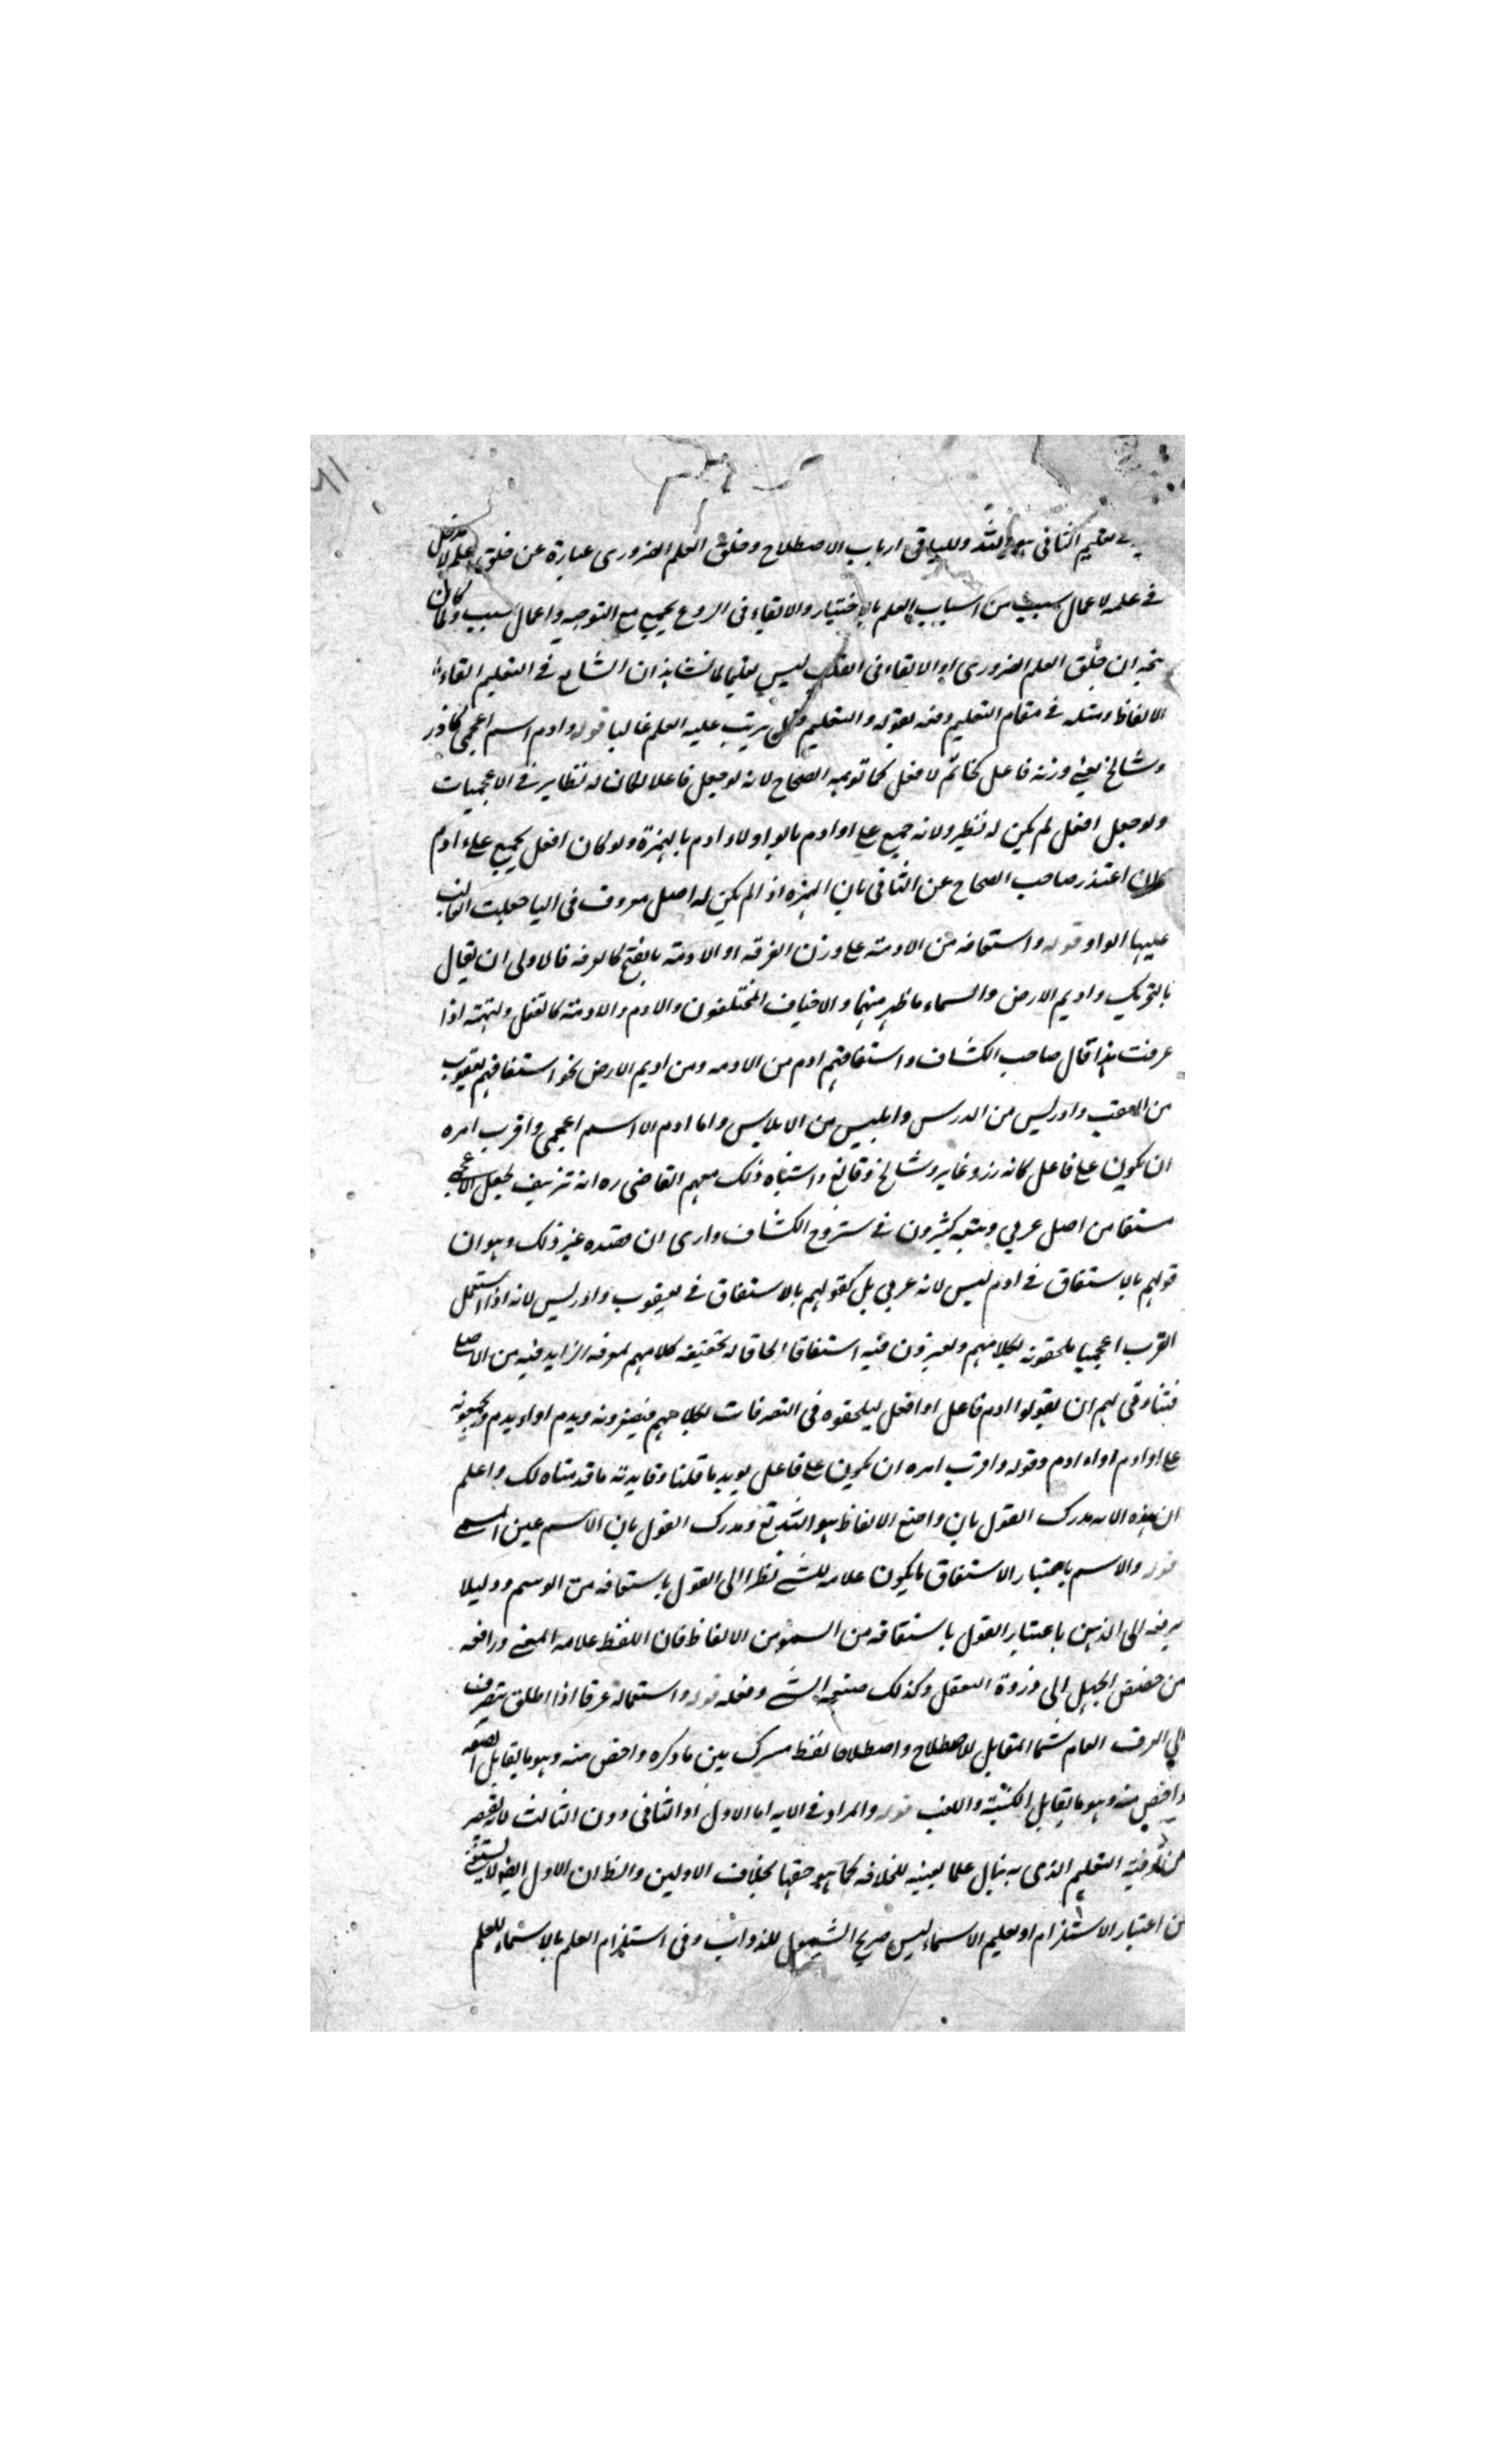 في تعليم الثاني هو الله وللباقي ارباب الاصطلاح وخلق العلم الضروري عبارة عن خلق علم لا مدخل
في علمه لاعمال سبب من اسباب العلم بالاختيار والالقاء في الروع يجمع مع التوجه واعمال سبب ولما كان
يتجه ان خلق العلم الضروري او الالقاء في القلب ليس تعليما لما نشاهد ان الشايع في التعليم القاء
الالفاظ ومثله في مقام التعليم دفعه بقوله والتعليم فعل يترتب عليه العلم غالبا قوله وادم اسم اعجمي كاذر
وشالخ يعني وزنه فاعل كخاتم لا افعل كما توهمه الصحاح لانه لو جعل فاعلا لكان له نظاير في الاعجميات
ولو جعل افعل لم يكن له نظير ولانه جمع على اوادم بالواو لا ءادم بالهمزة ولو كان افعل يجمع على ءادم
اعتذر صاحب الصحاح عن الثاني بان الهمزه اذا لم يكن لها اصل معروف في اليا جعلت الغالب
عليها الواو قوله واشتقاقه من الادمة على وزن الغرفة او الادمة بالفتح كالغرفة فالاولى ان يقال
بالتحريك واديم الارض والسماء ما ظهر منهما والاخياف المختلفون والادم والادمة كالقفل اذا
عرفت هذا قال صاحب الكشاف واشتقاقهم ادم من الادمه ومن اديم الارض نحو اشتقاقهم يعقوب
من العقب وادريس من الدرس وابليس من الابلاس واما ادم الا اسم اعجمي واقرب امره
ان يكون على فاعل كانه رز وعابر وشالخ وفالغ واشباه ذلك ففهم القاضي ره انه تزييف لجعل الاعجمي
مشتقا من اصل عربي وتبعه كثيرون في شروح الكشاف وارى ان قصده غير ذلك وهو ان
قولهم بالاشتقاق في ادم ليس لانه عربي بل كقولهم بالاشتقاق في يعقوب وادريس لانه اذا استعمل
العرب اعجميا يلحقونه بكلامهم ويعتبرون فيه اشتقاقا الحاقا له بحقيقة كلامهم لمعرفة الزايد فيه من الاصلي
لهم ان يقولوا ادم فاعل او افعل ليلحقوه في التصرفات بكلامهم فيصغرونه ويدم او اءيدم ويجمعونه
على اوادم او اءادم وقوله واقرب امره ان يكون على فاعل يويد ما قلنا وفايدته ما قدمناه لك واعلم
ان هذه الايه مدرك القول بان واضع الالفاظ هو الله تع ومدرك القول بان الاسم عين المسمى
قوله والاسم باعتبار الاشتقاق ما يكون علامه للشي نظرا الى القول باشتقاقه من الوسم ودليلا
يرفعه الى الذهن باعتبار القول باشتقاقه من السمو من الالفاظ فان اللفظ علامه المعنى ورافعه
من حضيض الجهل الى ذروة التعقل وكذلك صفة الشي وفعله قوله واستعماله عرفا اذا اطلق ينصرف
الى العرف العام المقابل للاصطلاح واصطلاحا لفظ مشترك بين ما ذكره واخص منه وهو ما يقابل الصفه
واخص منه وهو ما يقابل الكنية واللقب قوله والمراد في الايه اما الاول او الثاني دون الثالث لانه يقصر
عن توفية التعليم الذي به ينال علما يعينه للخلافه كما هو حقها بخلاف الاولين والظ ان الاول ايضا لا يستغني
عن اعتبار الاستلزام اذ تعليم الاسماء ليس صريح الشمول للذوات وفي استلزام العلم بالاسماء للعلم